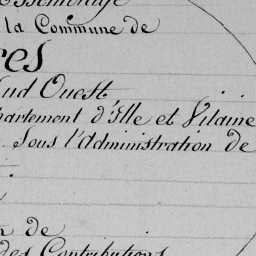 la Commune de
res
Sud Ouest
partement d'Ille et Vilaine
Sous l'Administration de
de
des Contributions